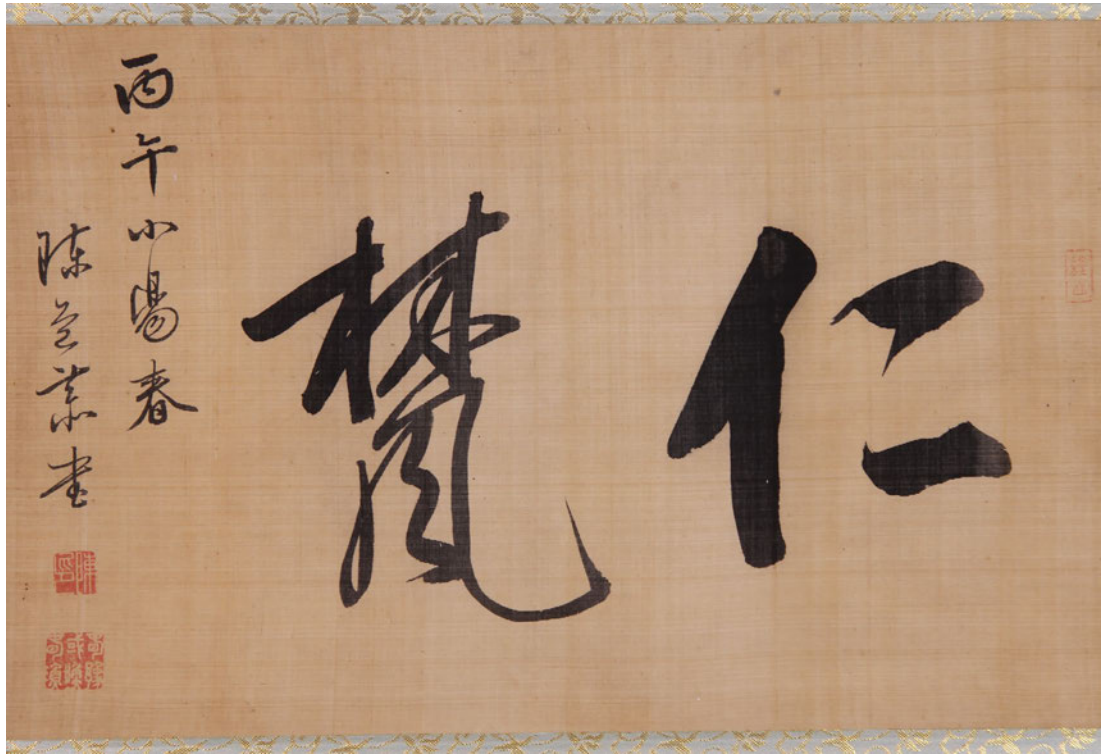 仁檒
丙午小陽春
陳業書